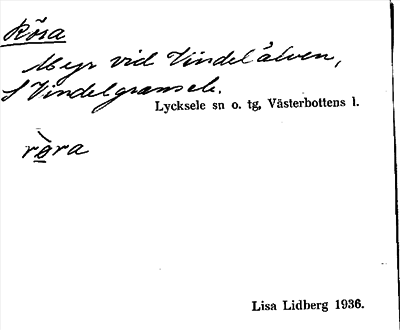 Röra
Myr vid Vindelälven,
S Vindelgransele.
Lycksele sn o. tg, Västerbottens l.
rö̀ra
Lisa Lidberg 1936.